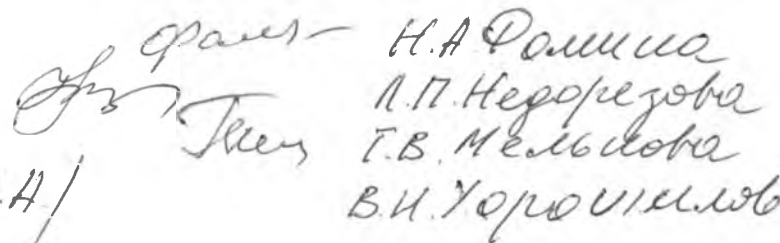 Н.А Фомина
Л.П. Недорезова
Т.В. Мелькова
А/
В.И. Хорошилов